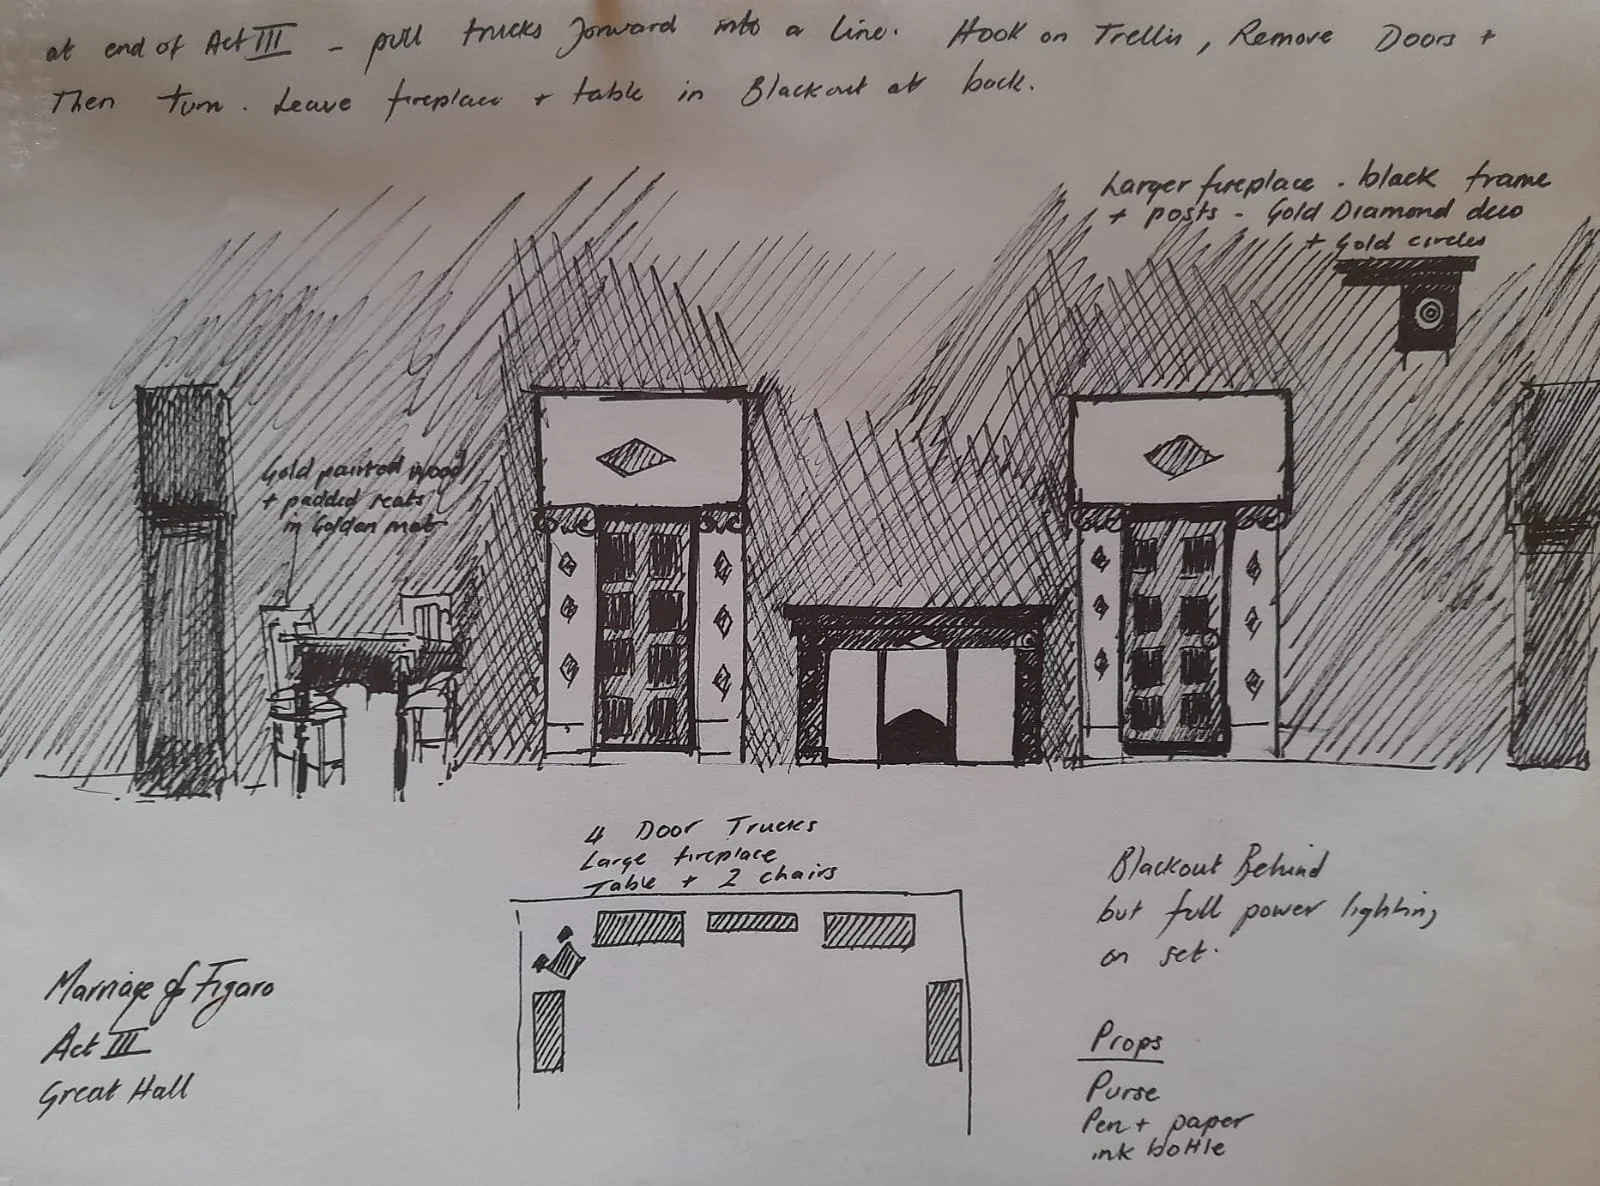 at end of Act III - pull trucks forward into a line. Hook on Trellis, Remove Doors +
Then turn. Leave fireplace + table in Blackout at back.
Larger fireplace - black frame
+ posts - Gold Diamond deco
+ Gold circles
Gold painted wood
+ padded seats
in Golden mat
4 Door Trucks
Large fireplace
Table + 2 chairs
Blackout Behind
but full power lighting
on set.
Marriage of Figaro
Act III
Great Hall
Props
Purse
Pen + paper
ink bottle